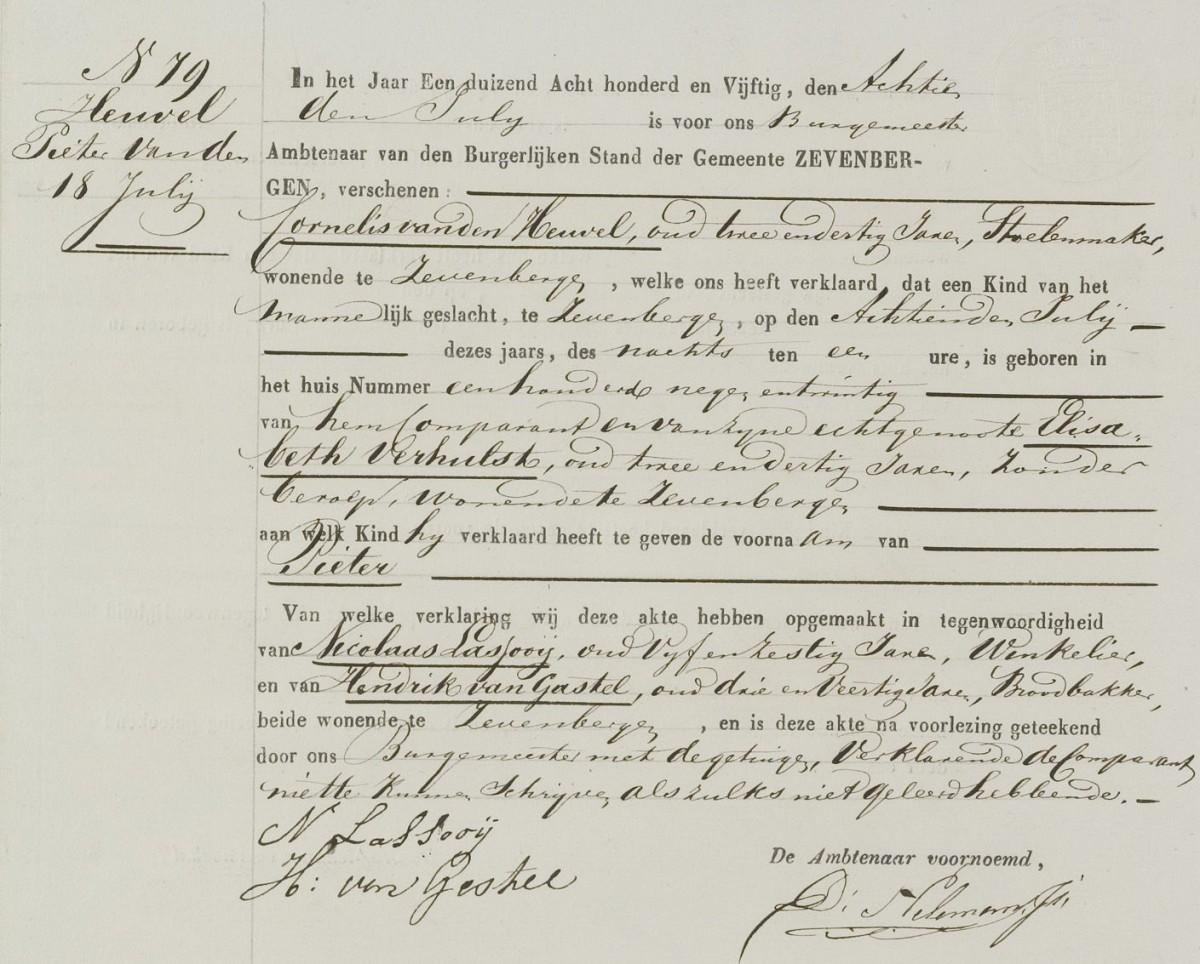 N 79
Heuvel
Pieter van den
18 Julij
In het Jaar Een duizend Acht honderd en Vijftig, den Achtien
den July is voor ons Burgemeester
Ambtenaar van den Burgerlijken Stand der Gemeente ZEVENBER-
GEN, verschenen:
Cornelis van den Heuvel, oud twee en dertig Jaren, Stoelenmaker,
wonende te Zevenbergen, welke ons heeft verklaard, dat een Kind van het
mannelijk geslacht, te Zevenbergen, op den Achtienden Julij
dezes jaars, des nachts ten een ure, is geboren in
het huis Nummer een honderd negen en twintig
van hem Comparant en van zyne echtgenoote Elisa-
beth Verhulst, oud twee en dertig Jaren, zonder
beroep, wonende te Zevenbergen
aan welk Kind hy verklaard heeft te geven de voornaam van
Pieter
Van welke verklaring wij deze akte hebben opgemaakt in tegenwoordigheid
van Nicolaas Lassooij, oud Vyf en zestig Jaren, Winkelier,
en van Hendrik van Gastel, oud drie en Veertig Jaren, Broodbakker,
beide wonende te Zevenbergen, en is deze akte na voorlezing geteekend
door ons Burgemeester met de getuigen, Verklarende de Comparant
niet te kunnen Schryven, als zulks niet geleerd hebbende.
N Lassooij
H: van Gestel
De Ambtenaar voornoemd,
D: